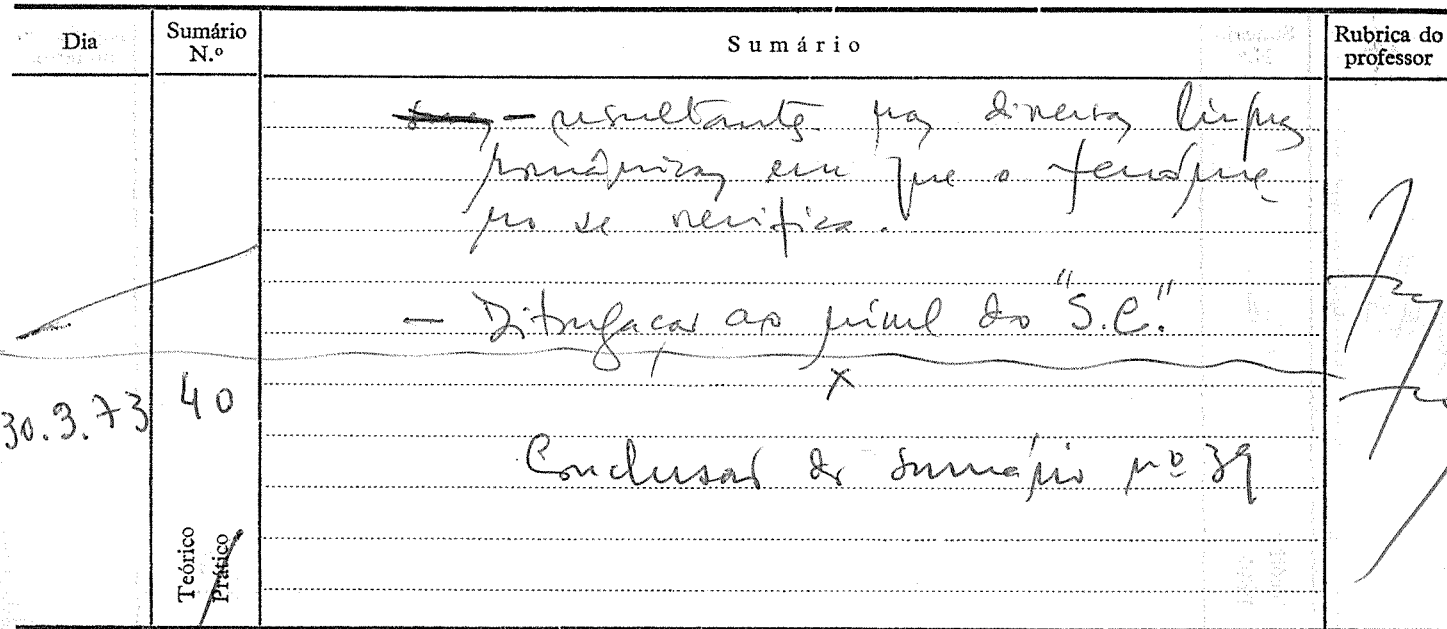 Dia
Sumário
N.º
Sumário
Rubrica do
professor
– resultantes nas diversas línguas
românicas em que o fenóme
no se verifica.
– Ditongação ao nível do "S.C."
x
30.3.73
40
Conclusão do sumário nº 39
Teórico
Prático